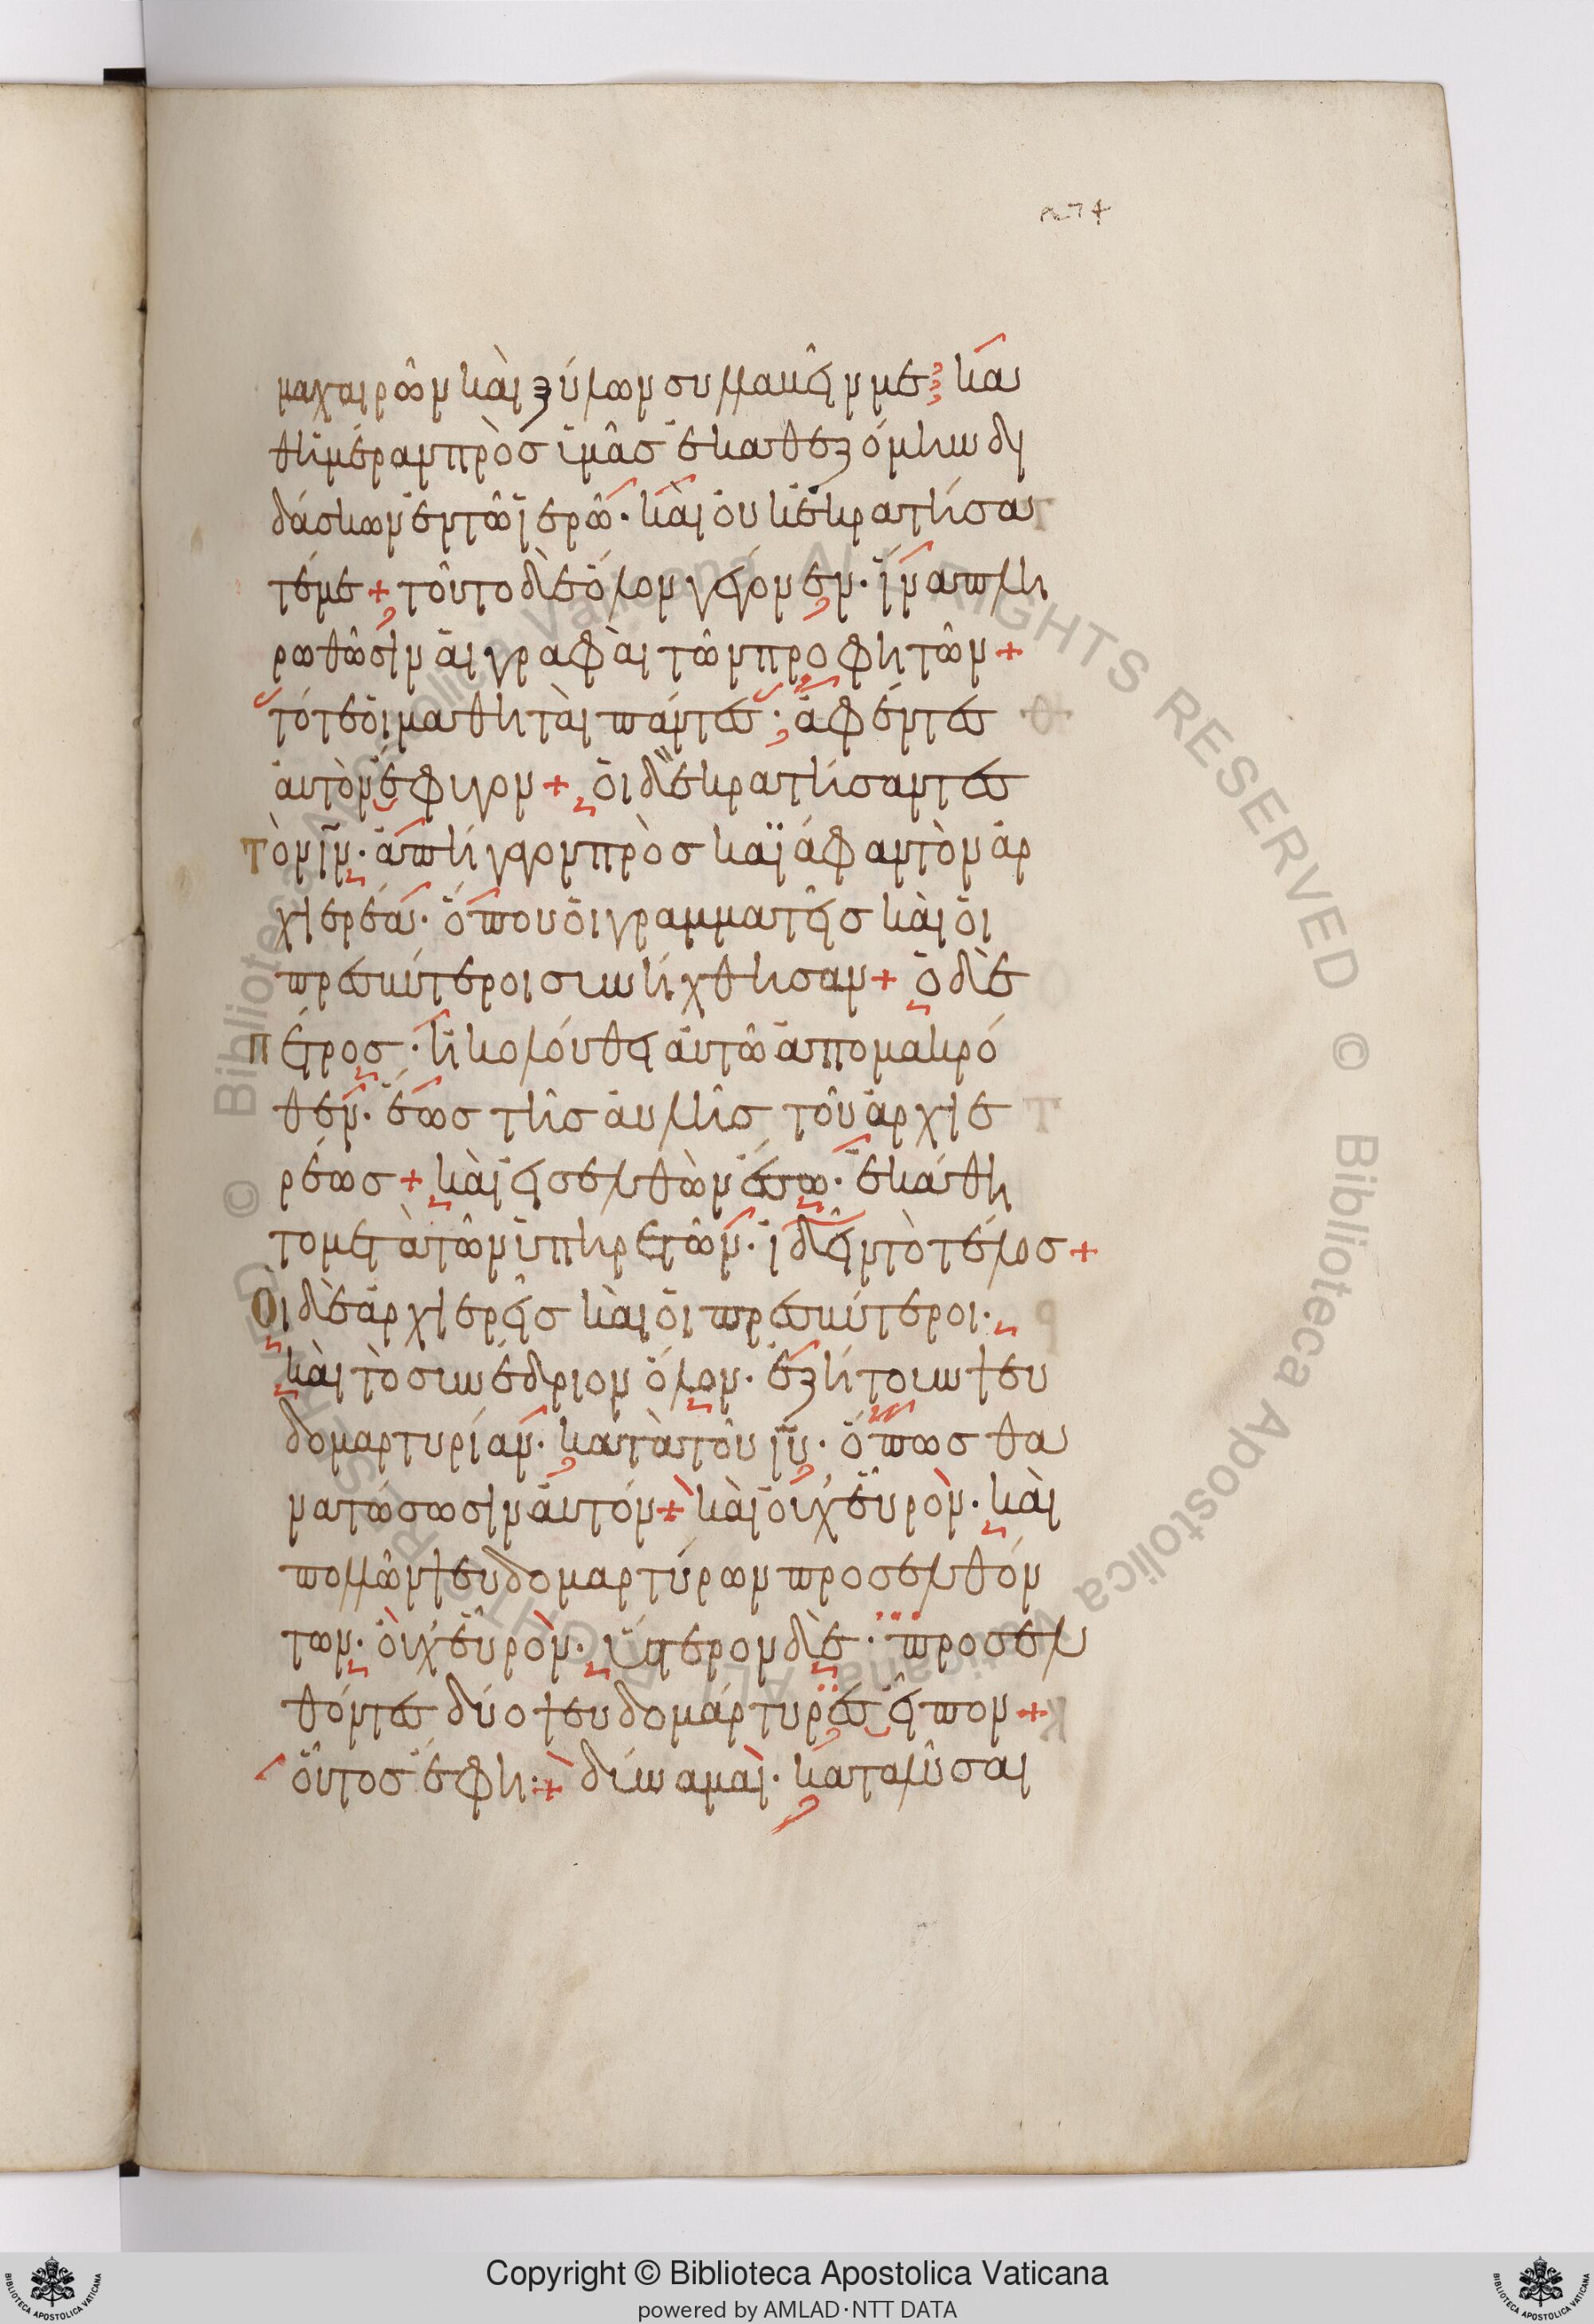 μαχαιρῶν καὶ ξύλων συλλαβεῖν με; κα
θημέραν πρὸς ὑμᾶς ἐκαθεζόμην δι
δάσκων ἐν τῶ ἱερῶ· καὶ οὐκ ἐκρατήσα
τέ με + τοῦτο δὲ ὅλον γέγονεν· ἵνα πλη
ρωθῶσιν αἱ γραφαὶ τῶν προφητῶν +
τότε οἱ μαθηταὶ πάντες· ἀφέντες
αὐτὸν ἔφυγον + οἱ δὲ κρατήσαντες
τὸν ἰν· ἀπήγαγον πρὸς καϊάφαν τὸν ἀρ
χιερέα· ὅπου οἱ γραμματεῖς καὶ οἱ
πρεσβύτεροι συνήχθησαν + ὁ δὲ
πέτρος· ἠκολούθει αὐτῶ ἀπὸ μακρό
θεν· ἕως τῆς αὐλῆς τοῦ ἀρχιε
ρέως + καὶ εἰσελθὼν ἔσω· ἐκάθη
το μετὰ τῶν ὑπηρετῶν· ἰδεῖν τὸ τέλος +
Οἱ δὲ ἀρχιερεῖς καὶ οἱ πρεσβύτεροι·
καὶ τὸ συνέδριον ὅλον· ἐζήτουν ψευ
δομαρτυρίαν· κατὰ τοῦ ἰυ· ὅπως θα
νατώσωσιν αὐτόν + καὶ οὐχ εὗρον· καὶ
πολλῶν ψευδομαρτύρων προσελθόν
των· οὐχ εὗρον· ὕστερον δὲ· προσελ
θόντες δύο ψευδομάρτυρες εἶπον +
οὗτος ἔφη· + δύναμαι· καταλῦσαι
Copyright © Biblioteca Apostolica Vaticana
powered by AMLAD·NTT DATA